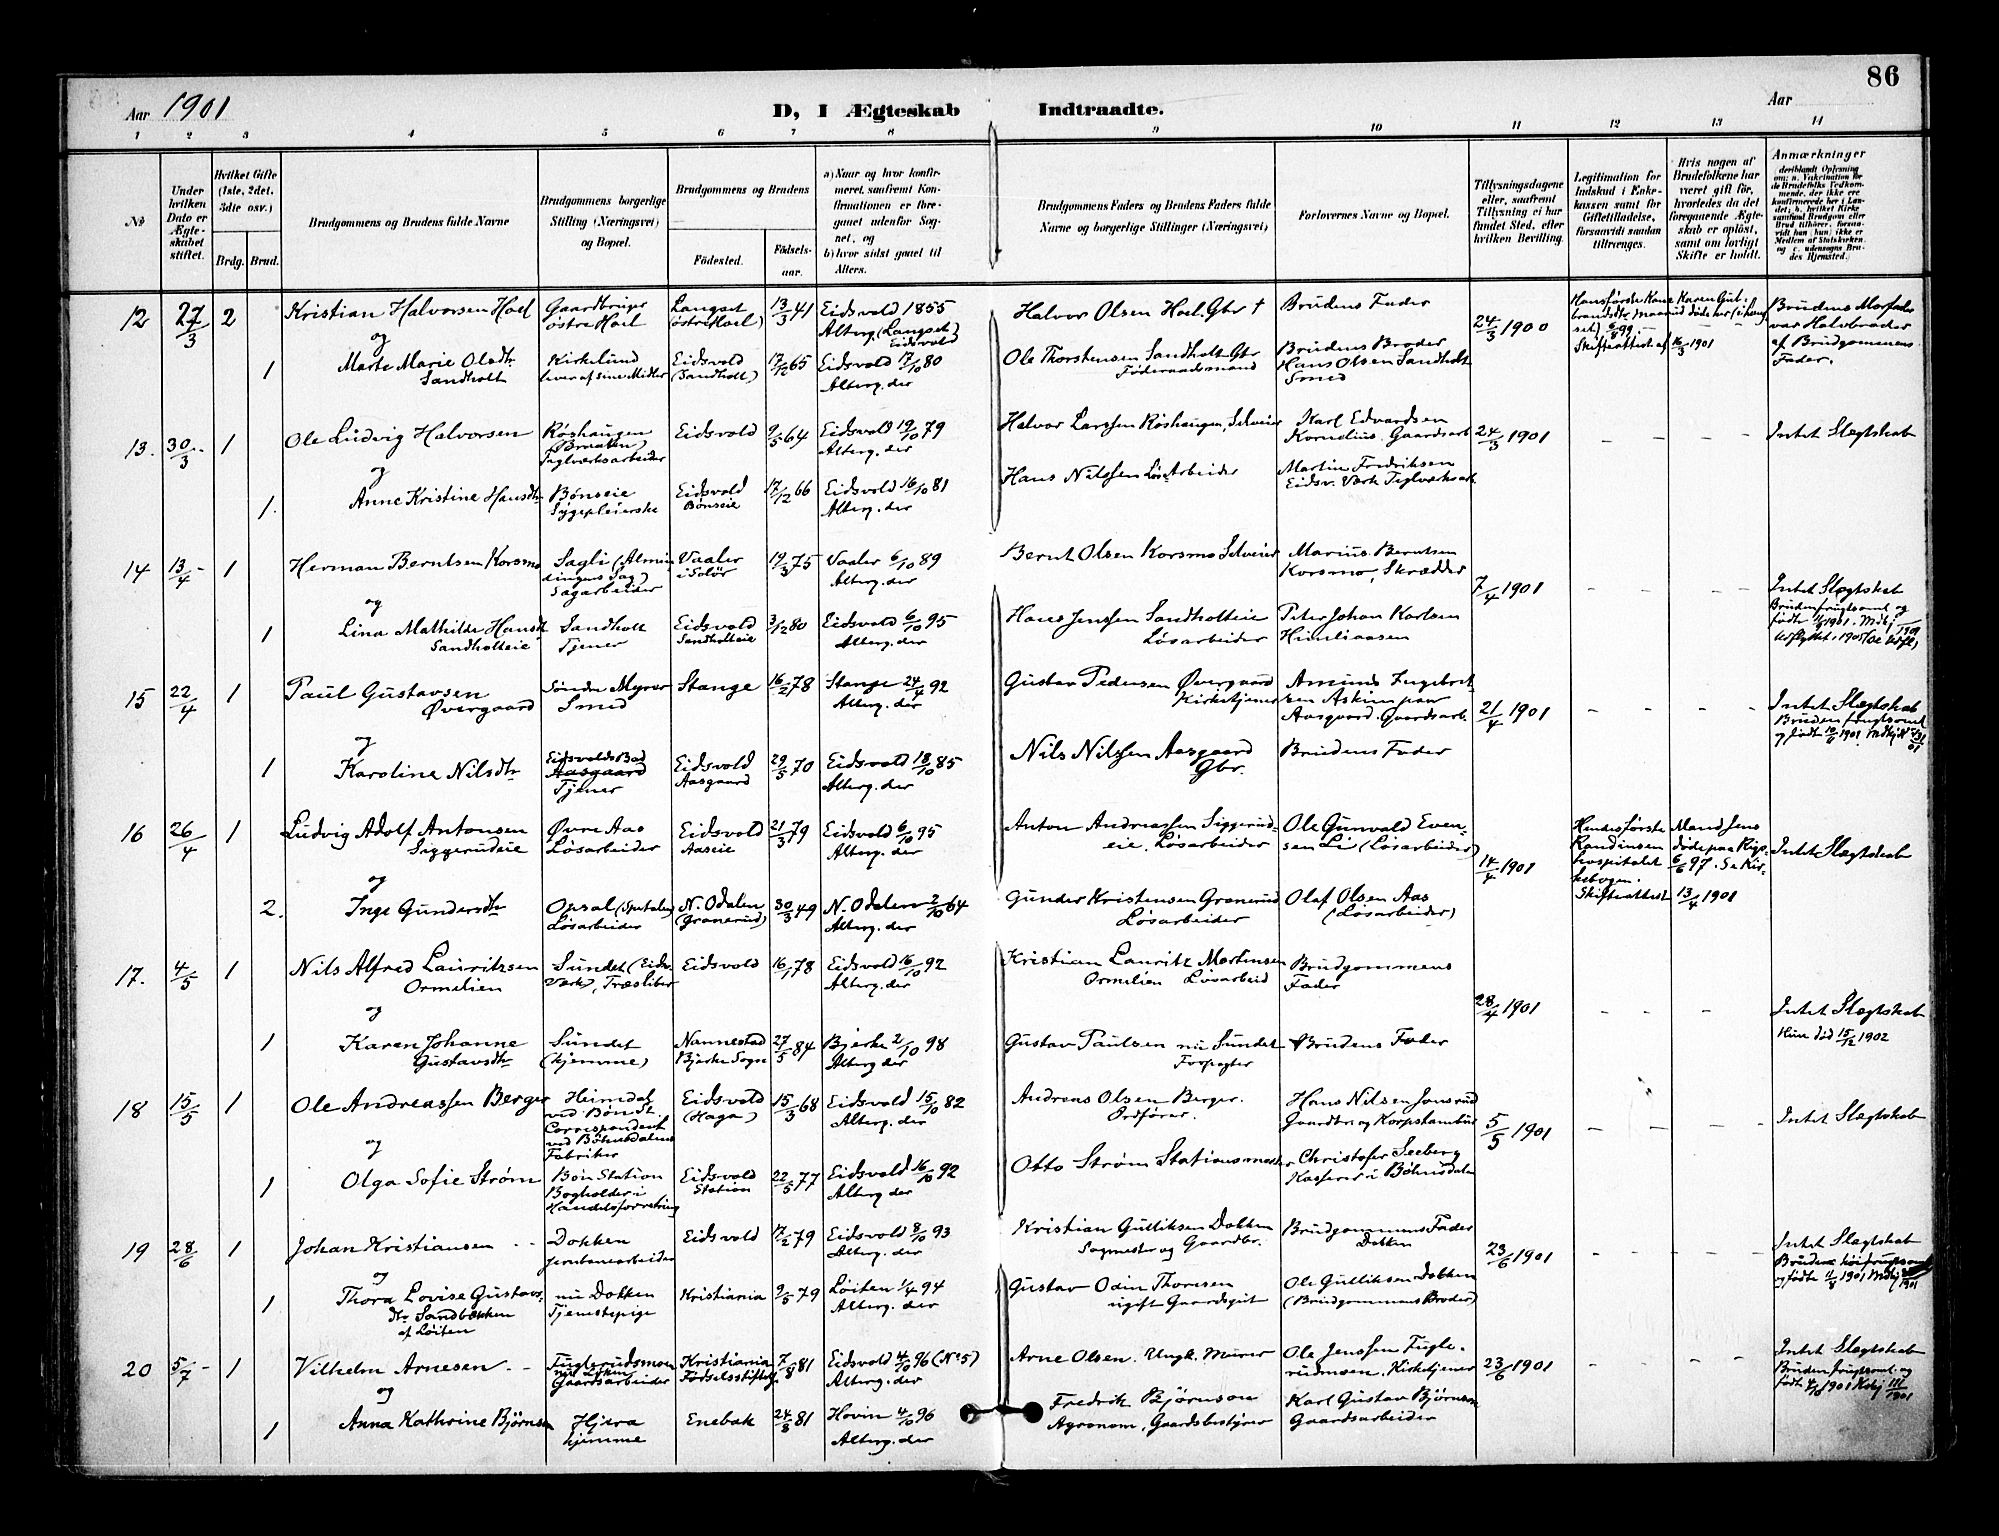 86
Aar 1901
D, I Ægteskab Indtraadte.
Aar
1 2 3 4 5 6 7 8 9 10 11 12 13 14
№
Under hvilken Dato er Ægteskabet stiftet.
Hvilket Gifte (1ste, 2det, 3die osv.)
Brdg. Brud.
Brudgommens og Brudens fulde Navne
Brudgommens borgerlige Stilling (Næringsvei) og Bopæl.
Brudgommens og Brudens
Fødested.
Fødselsaar.
a) Naar og hvor konfirmeret, saafremt Konfirmationen er foregaaet udenfor Sognet, og
b) hvor sidst gaaet til Alters.
Brudgommens Faders og Brudens Faders fulde Navne og borgerlige Stillinger (Næringsvei)
Forlovernes Navne og Bopæl.
Tillysningsdagene eller, saafremt Tillysning ei har fundet Sted, efter hvilken Bevilling.
Legitimation for Indskud i Enkekassen samt for Giftetilladelse, forsaavidt saadan tiltrænges.
Hvis nogen af Brudefolkene har været gift før, hvorledes da det foregaaende Ægteskab er opløst, samt om lovligt Skifte er holdt.
Anmærkninger
12 27/3 2 Kristian Halvorsen Hoel Gaardbruger Langset 13/3 41 Eidsvold 1855 Halvor Olsen Hoel, Gbr † Brudens Fader 24/3 1900 Hans første Kone Karen Gulbrandsdtr Brudens Morfader
østre Hoel (østre Hoel) Alterg. (Langset) 6/8 99 var Halvbroder
og Eidsvold Skifteattest af 16/3 1901 af Brudgommens
1 Marte Marie Olsdtr Kirkelund Eidsvold 17/12 65 Eidsvold 17/10 80 Ole Thorstensen Sandholt Gbr Brudens Broder Fader.
Sandholt lever af sine Midler (Sandholt) Alterg. der Føderaadsmand Hans Olsen Sandholt
Smed
13. 30/3 1 Ole Ludvig Halvorsen Røshaugen Eidsvold 9/5 64 Eidsvold 19/10 79 Halvor Larssen Røshaugen, Selveier Karl Edvardsen 24/3 1901 – – – – Intet Slægtskab
(Braaten) Alterg. der Kornelius. Gaardsarb
og Teglværksarbeider
1. Anne Kristine Hansdtr Bønseie Eidsvold 17/12 66 Eidsvold 16/10 81 Hans Nilssen Løsarbeider Martin Fredriksen
Sygepleierske Bønseie Alterg. der Eidsv. Værk Teglværksarb.
14 13/4 1 Herman Berntsen Korsmo Sagli (Almindingens Sag) Vaaler 19/3 75 Vaaler 6/10 89 Bernt Olsen Korsmo Selveier Marius Berntsen 7/4 1901 – – – Intet Slægtskab
Sagarbeider i Solør Alterg. der Korsmo, Skrædder Bruden frugtsomt og
og født 1901.
1 Lina Mathilde Hansdtr Sandholt Eidsvold 3/12 80 Eidsvold 6/10 95 Hans Jenssen Sandholteie Peter Johan Karlsen
Sandholteie Tjener Sandholteie Alterg. der Løsarbeider Himliaasen
15 22/4 1 Paul Gustavsen Søndre Myrer Stange 16/2 78 Stange 24/4 92 Gustav Pedersen Øvergaard Amund Engebretsen 21/4 1901 – – – Intet Slægtskab
Øvergaard Smed Alterg. der Kirketjener Askim paa Bruden frugtsomt
og Aasgaard. Gaardsarb. og født 10/6 1901.
1 Karoline Nilsdtr Eidsvolds Bad Eidsvold 29/5 70 Eidsvold 18/10 85 Nils Nilssen Aasgaard Brudens Fader
Aasgaard Aasgaard Alterg. der Gbr.
Tjener
16 26/4 1 Ludvig Adolf Antonsen Øvre Aas Eidsvold 21/3 79 Eidsvold 6/10 95 Anton Andreassen Siggerudeie, Løsarbeider Ole Gunvald Evensen Li (Løsarbeider) 14/4 1901 Hendes første Mand Jens Intet Slægtskab
Siggerudeie Løsarbeider Aaseie Alterg. der Randinsen døde paa Rigshospitalet 6/6 97. Se Kirkebogen.
og
2. Inge Gundersdtr Opsal N. Odalen 30/3 49 N. Odalen 2/10 64 Gunder Kristensen Granerud Olaf Olsen Aas Skifteattest 13/4 1901
Løsarbeider (Granerud) Alterg. der Løsarbeider (Løsarbeider)
17. 4/5 1 Nils Alfred Lauritzsen Sundet (Eidsv. Eidsvold 16/1 78 Eidsvold 16/10 92 Kristian Lauritz Martinsen Brudgommens 28/4 1901 – – – Intet Slægtskab
Ormelien Værk), Træsliber Alterg. der Ormelien Løsarbeid Fader Hun død 15/12 1902
og
1 Karen Johanne Sundet Nannestad 27/5 84 Bjerke 2/10 98 Gustav Paulsen nu Sundet Brudens Fader
Gustavsdtr (hjemme) Bjerke Sogn Alterg der Forpagter
18 15/5 1 Ole Andreassen Berger Heimdal Eidsvold 15/3 68 Eidsvold 15/10 82 Andreas Olsen Berger. Hans Nilsen Jønsrud 5/5 1901 – – – Intet Slægtskab
ved Bøn St. (Haga) Alterg. der Ordfører. Gaardbr. og Korpstambur
Correspondent
og ved Bøhnsdalens
Fabriker
1 Olga Sofie Strøm Bøn Station Eidsvold 22/5 77 Eidsvold 16/10 92 Otto Strøm Stationsmester Christofer Seeberg
Bogholder i Station Alterg. der Kasserer i Bøhnsdalen
Handelsforretning
19 28/6 1 Johan Kristiansen Dokken Eidsvold 17/2 79 Eidsvold 8/10 93 Kristian Gulliksen Dokken Brudgommens Fader 23/6 1901 – – – Intet Slægtskab
Jernbanearbeider Alterg. der Sagmester og Gaardbr. Dokken
og
1 Thora Lovise Gustavsdtr Sandbakken nu Dokken Kristiania 9/5 79 Løiten 1/4 94 Gustav Odin Thoresen Ole Gulliksen Dokken
af Løiten Tjenestepige Alterg. der ugift Gaardsgut (Brudgommens Broder)
20 5/7 1 Vilhelm Arnesen Fuglerudsmoen Kristiania 7/8 81 Eidsvold 4/10 96 (№ 5) Arne Olsen. Ungk. Murer Ole Jenssen Fuglerudmoen, Kirketjener 23/6 1901 – – – Intet Slægtskab
Gaardsarbeider Fødselsstiftels. Alterg. der Bruden frugtsomt og
og
1 Anna Kathrine Björnsen Hjera Enebak 24/3 81 Hovin 4/10 96 Fredrik Björnson Karl Gustav Björnsen
hjemme Alterg. der Agronom, Gaardsbestyrer Gaardsarbeider